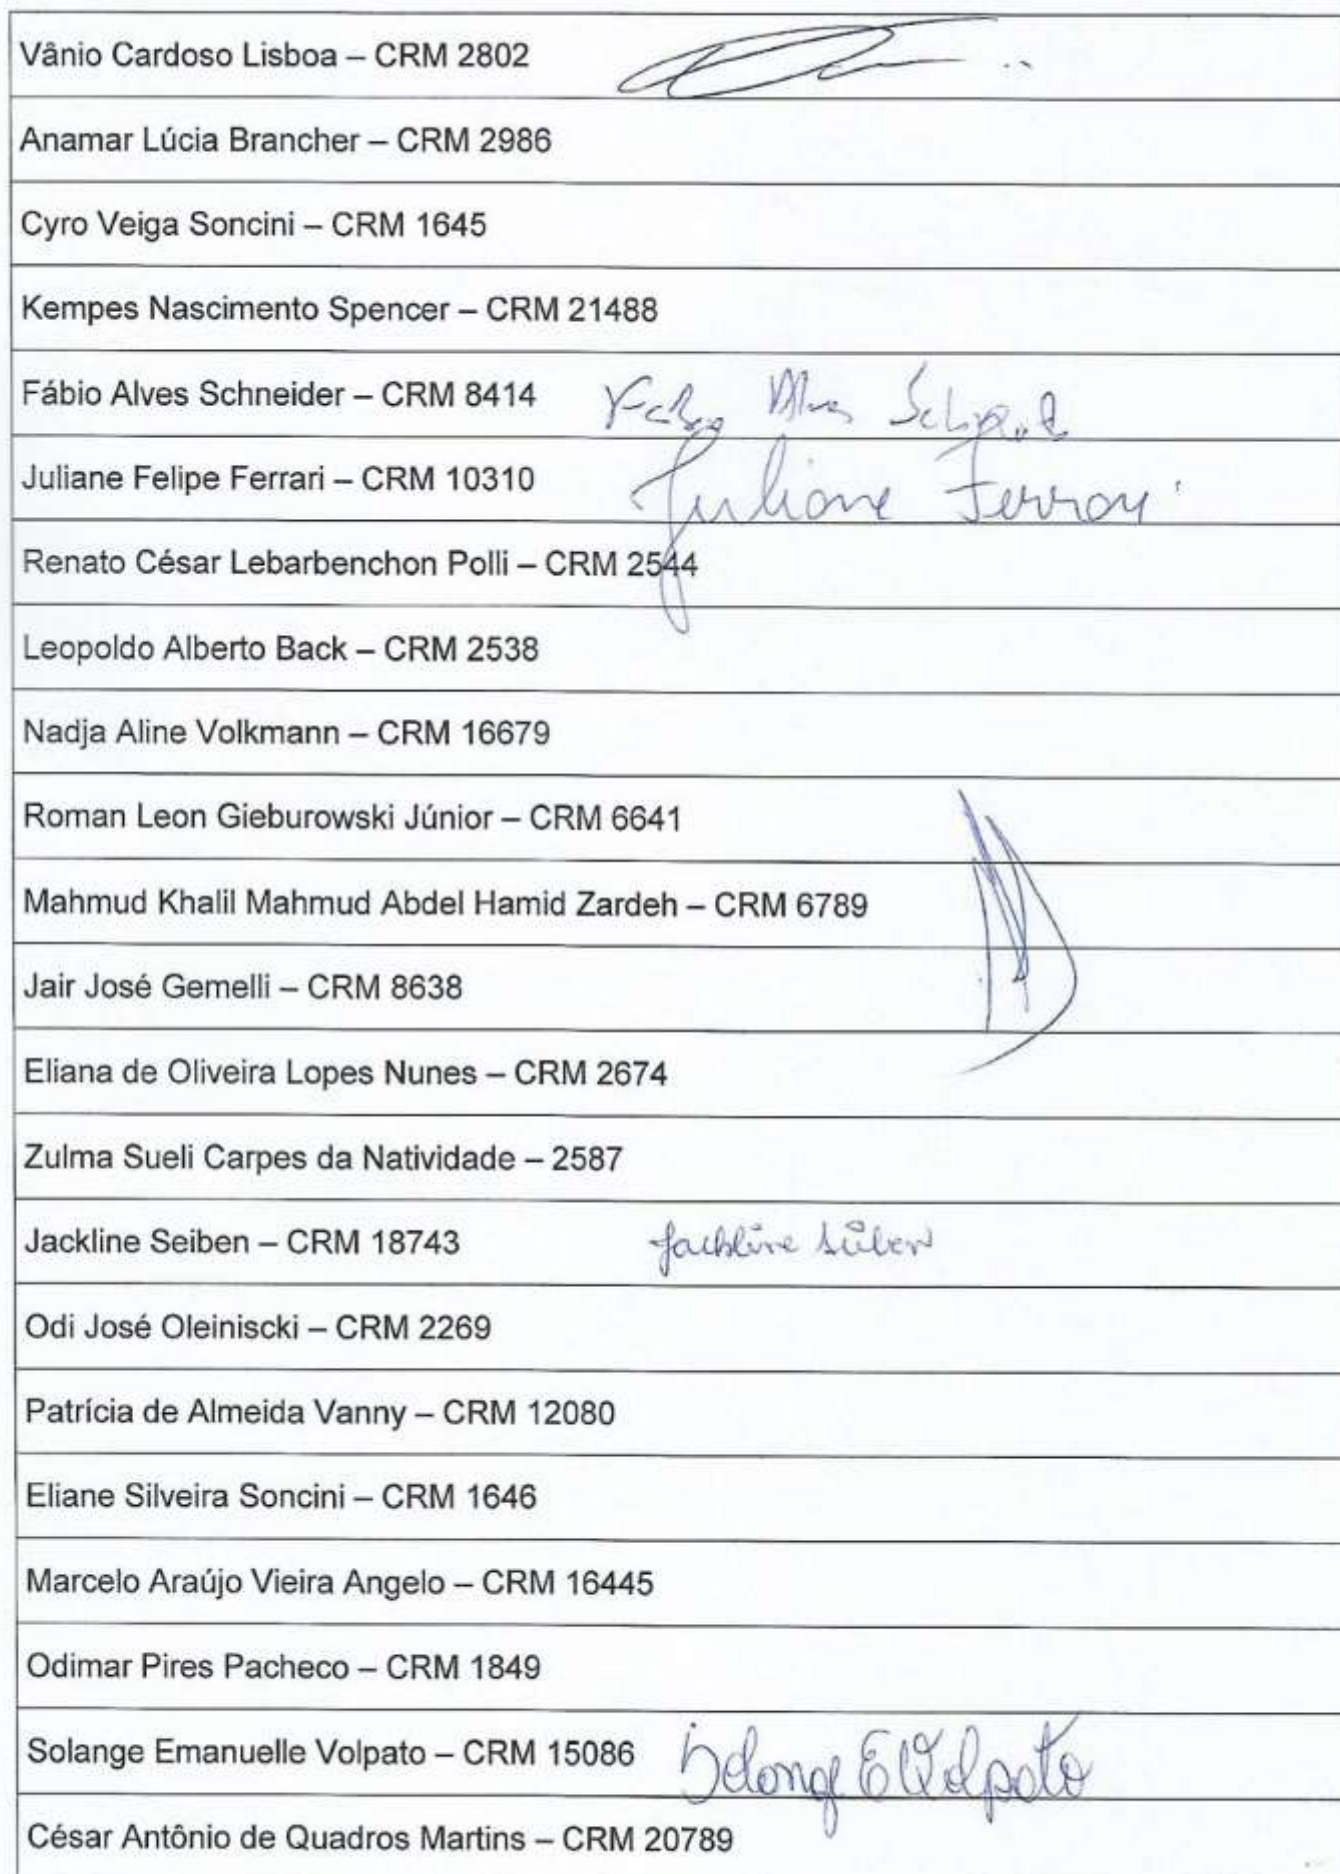 Vânio Cardoso Lisboa – CRM 2802
Anamar Lúcia Brancher – CRM 2986
Cyro Veiga Soncini – CRM 1645
Kempes Nascimento Spencer – CRM 21488
Fábio Alves Schneider – CRM 8414
Juliane Felipe Ferrari – CRM 10310 Juliane Ferrari
Renato César Lebarbenchon Polli – CRM 2544
Leopoldo Alberto Back – CRM 2538
Nadja Aline Volkmann – CRM 16679
Roman Leon Gieburowski Júnior – CRM 6641
Mahmud Khalil Mahmud Abdel Hamid Zardeh – CRM 6789
Jair José Gemelli – CRM 8638
Eliana de Oliveira Lopes Nunes – CRM 2674
Zulma Sueli Carpes da Natividade – 2587
Jackline Seiben – CRM 18743 Jackline Seiben
Odi José Oleiniscki – CRM 2269
Patrícia de Almeida Vanny – CRM 12080
Eliane Silveira Soncini – CRM 1646
Marcelo Araújo Vieira Angelo – CRM 16445
Odimar Pires Pacheco – CRM 1849
Solange Emanuelle Volpato – CRM 15086 Solange E Volpato
César Antônio de Quadros Martins – CRM 20789